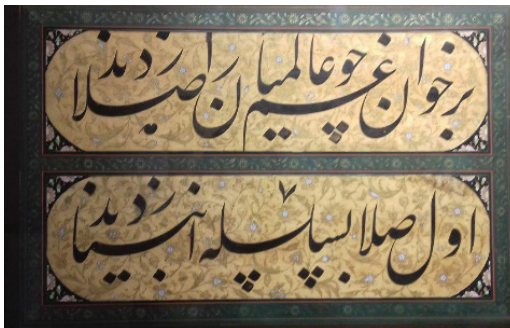 بر خوان غم چو عالمیان را صلا زدند
اول صلا بسلسله انبیا زدند